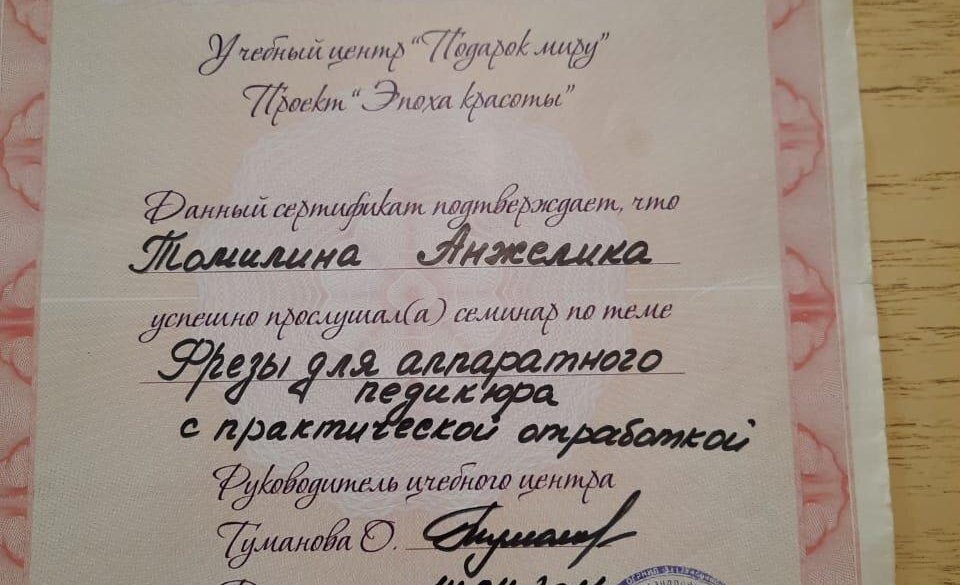 Учебный центр "Подарок миру"
Проект "Эпоха красоты"
Данный сертификат подтверждает, что
Томилина Анжелика
успешно прослушал(а) семинар по теме
Фрезы для аппаратного
педикюра
с практической отработкой
Руководитель учебного центра
Туманова О.